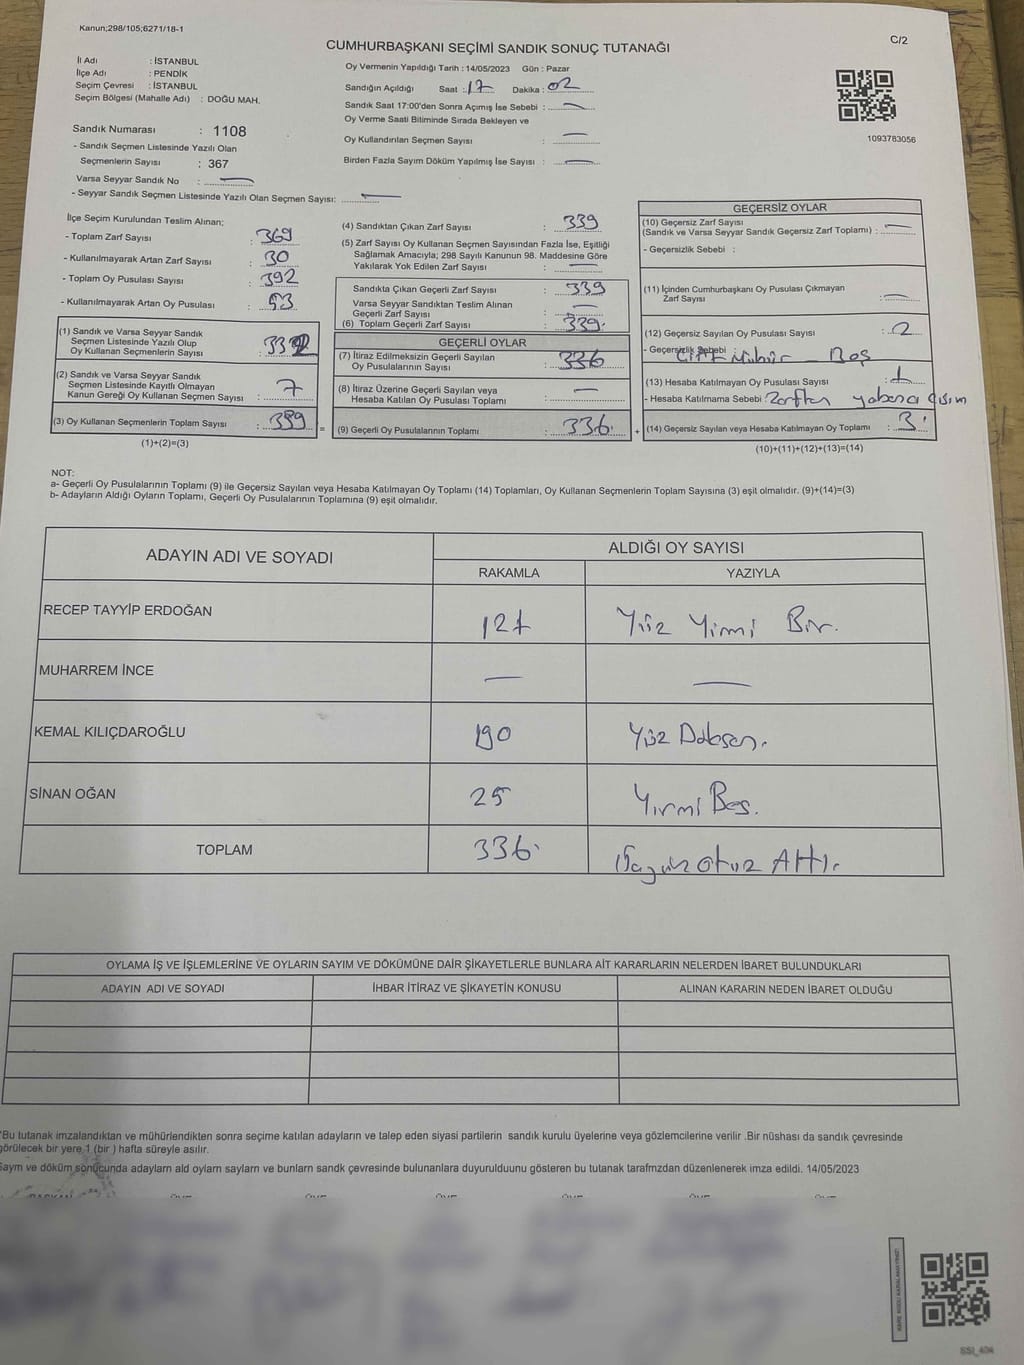 Kanun;298/105;6271/18-1
C/2
CUMHURBAŞKANI SEÇİMİ SANDIK SONUÇ TUTANAĞI
İl Adı : İSTANBUL
İlçe Adı : PENDİK
Seçim Çevresi : İSTANBUL
Seçim Bölgesi (Mahalle Adı) : DOĞU MAH.
Sandık Numarası : 1108
- Sandık Seçmen Listesinde Yazılı Olan
Seçmenlerin Sayısı : 367
Varsa Seyyar Sandık No : —
- Seyyar Sandık Seçmen Listesinde Yazılı Olan Seçmen Sayısı: —
Oy Vermenin Yapıldığı Tarih : 14/05/2023 Gün : Pazar
Sandığın Açıldığı Saat : 17 Dakika : 02
Sandık Saat 17:00'den Sonra Açımış İse Sebebi : —
Oy Verme Saati Bitiminde Sırada Bekleyen ve
Oy Kullandırılan Seçmen Sayısı : —
Birden Fazla Sayım Döküm Yapılmış İse Sayısı : —
1093783056
İlçe Seçim Kurulundan Teslim Alınan;
- Toplam Zarf Sayısı : 369
- Kullanılmayarak Artan Zarf Sayısı : 30
- Toplam Oy Pusulası Sayısı : 392
- Kullanılmayarak Artan Oy Pusulası : 53
(1) Sandık ve Varsa Seyyar Sandık
Seçmen Listesinde Yazılı Olup
Oy Kullanan Seçmenlerin Sayısı :
(2) Sandık ve Varsa Seyyar Sandık
Seçmen Listesinde Kayıtlı Olmayan
Kanun Gereği Oy Kullanan Seçmen Sayısı : 7
(3) Oy Kullanan Seçmenlerin Toplam Sayısı : 339 =
(1)+(2)=(3)
(4) Sandıktan Çıkan Zarf Sayısı : 339
(5) Zarf Sayısı Oy Kullanan Seçmen Sayısından Fazla İse, Eşitliği
Sağlamak Amacıyla; 298 Sayılı Kanunun 98. Maddesine Göre
Yakılarak Yok Edilen Zarf Sayısı : —
Sandıkta Çıkan Geçerli Zarf Sayısı : 339
Varsa Seyyar Sandıktan Teslim Alınan
Geçerli Zarf Sayısı : —
(6) Toplam Geçerli Zarf Sayısı : 339.
GEÇERLİ OYLAR
(7) İtiraz Edilmeksizin Geçerli Sayılan
Oy Pusulalarının Sayısı : 336
(8) İtiraz Üzerine Geçerli Sayılan veya
Hesaba Katılan Oy Pusulası Toplamı : —
(9) Geçerli Oy Pusulalarının Toplamı : 336. +
GEÇERSİZ OYLAR
(10) Geçersiz Zarf Sayısı
(Sandık ve Varsa Seyyar Sandık Geçersiz Zarf Toplamı) : —
- Geçersizlik Sebebi :
(11) İçinden Cumhurbaşkanı Oy Pusulası Çıkmayan
Zarf Sayısı : —
(12) Geçersiz Sayılan Oy Pusulası Sayısı : 2
- Geçersizlik Sebebi : Çift Mühür - Boş
(13) Hesaba Katılmayan Oy Pusulası Sayısı : 1
- Hesaba Katılmama Sebebi Zarftan yabancı cisim
(14) Geçersiz Sayılan veya Hesaba Katılmayan Oy Toplamı : 3
(10)+(11)+(12)+(13)=(14)
NOT:
a- Geçerli Oy Pusulalarının Toplamı (9) ile Geçersiz Sayılan veya Hesaba Katılmayan Oy Toplamı (14) Toplamları, Oy Kullanan Seçmenlerin Toplam Sayısına (3) eşit olmalıdır. (9)+(14)=(3)
b- Adayların Aldığı Oyların Toplamı, Geçerli Oy Pusulalarının Toplamına (9) eşit olmalıdır.
ADAYIN ADI VE SOYADI
ALDIĞI OY SAYISI
RAKAMLA YAZIYLA
RECEP TAYYİP ERDOĞAN 121 Yüz Yirmi Bir.
MUHARREM İNCE — —
KEMAL KILIÇDAROĞLU 190 Yüz Doksan.
SİNAN OĞAN 25 Yirmi Beş.
TOPLAM 336. otuz Altı.
OYLAMA İŞ VE İŞLEMLERİNE VE OYLARIN SAYIM VE DÖKÜMÜNE DAİR ŞİKAYETLERLE BUNLARA AİT KARARLARIN NELERDEN İBARET BULUNDUKLARI
ADAYIN ADI VE SOYADI İHBAR İTİRAZ VE ŞİKAYETİN KONUSU ALINAN KARARIN NEDEN İBARET OLDUĞU
*Bu tutanak imzalandıktan ve mühürlendikten sonra seçime katılan adayların ve talep eden siyasi partilerin sandık kurulu üyelerine veya gözlemcilerine verilir .Bir nüshası da sandık çevresinde
görülecek bir yere 1 (bir ) hafta süreyle asılır.
Saym ve döküm sonucunda adaylarn ald oylarn saylarn ve bunlarn sandk çevresinde bulunanlara duyurulduunu gösteren bu tutanak tarafmzdan düzenlenerek imza edildi. 14/05/2023
SSİ_404